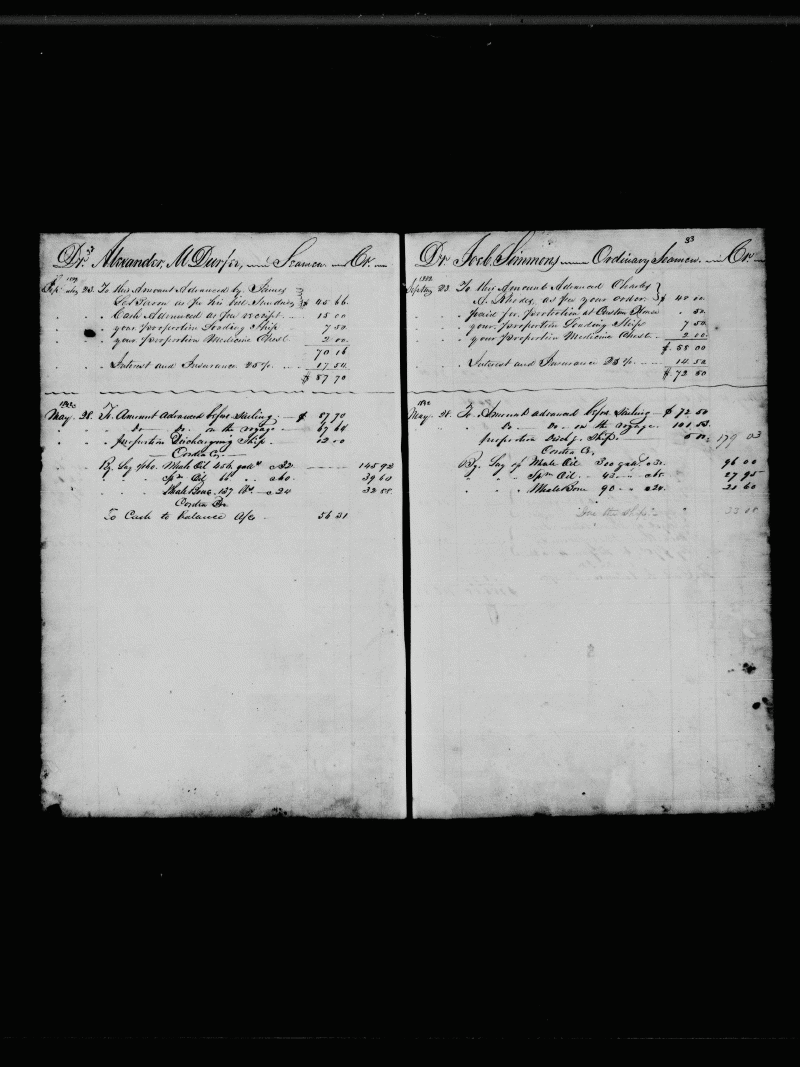 Dr. Alexander, M Durfee, Seaman Cr.
To this Amount Advanced by James
$ 45 66
Cash Advanced as per receipt 15 00
your proportion Loading Ship 7 50
your proportion Medicine Chest 2 00
70 16
Interest and Insurance 25 pr. 17 54
$ 87 70
May 28. To Amount Advanced before Sailing $ 87 70
Do Do on the voyage
proportion Discharging Ship
Contra Cr.
By Lay of Whale Oil 456 galls @32 145 92
Spm Oil 66 @60 39 60
Whale Bone 137 lbs @24 32 88
Contra Dr
To Cash to balance 56 31
33
Dr Job Simmons Ordinary Seaman Cr.
23 To this Amount Advanced Charles
A. Rhodes, as per your order $ 40 00
paid for protection at Custom House 50
your proportion Loading Ship 7 50
your proportion Medicine Chest 2 00
Interest and Insurance 25 pr. 14 50
$ 72 50
May 28. To Amount advanced before Sailing $ 72 50
Do Do on the voyage 101 53
proportion Disch'g Ship 5 00 179 03
Contra Cr.
By Lay of Whale Oil 300 galls @32 96 00
Spm Oil 43 @65 27 95
Whale Bone 90 @24 21 60